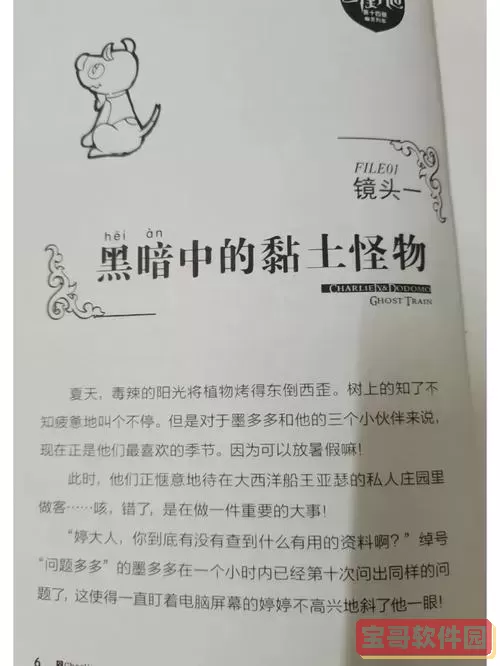 第十四册
幽灵列车
FILE01
镜头一
hēi àn
黑暗中的黏土怪物
CHARLIE IX & DODOMO
GHOST TRAIN
夏天，毒辣的阳光将植物烤得东倒西歪。树上的知了不
知疲惫地叫个不停。但是对于墨多多和他的三个小伙伴来说，
现在正是他们最喜欢的季节。因为可以放暑假嘛！
此时，他们正惬意地待在大西洋船王亚瑟的私人庄园里
做客……咳，错了，是在做一件重要的大事！
“婷大人，你到底有没有查到什么有用的资料啊？”绰号
“问题多多”的墨多多在一个小时内已经第十次问出同样的问
题了，这使得一直盯着电脑屏幕的婷婷不高兴地斜了他一眼！
6
宝哥软件园